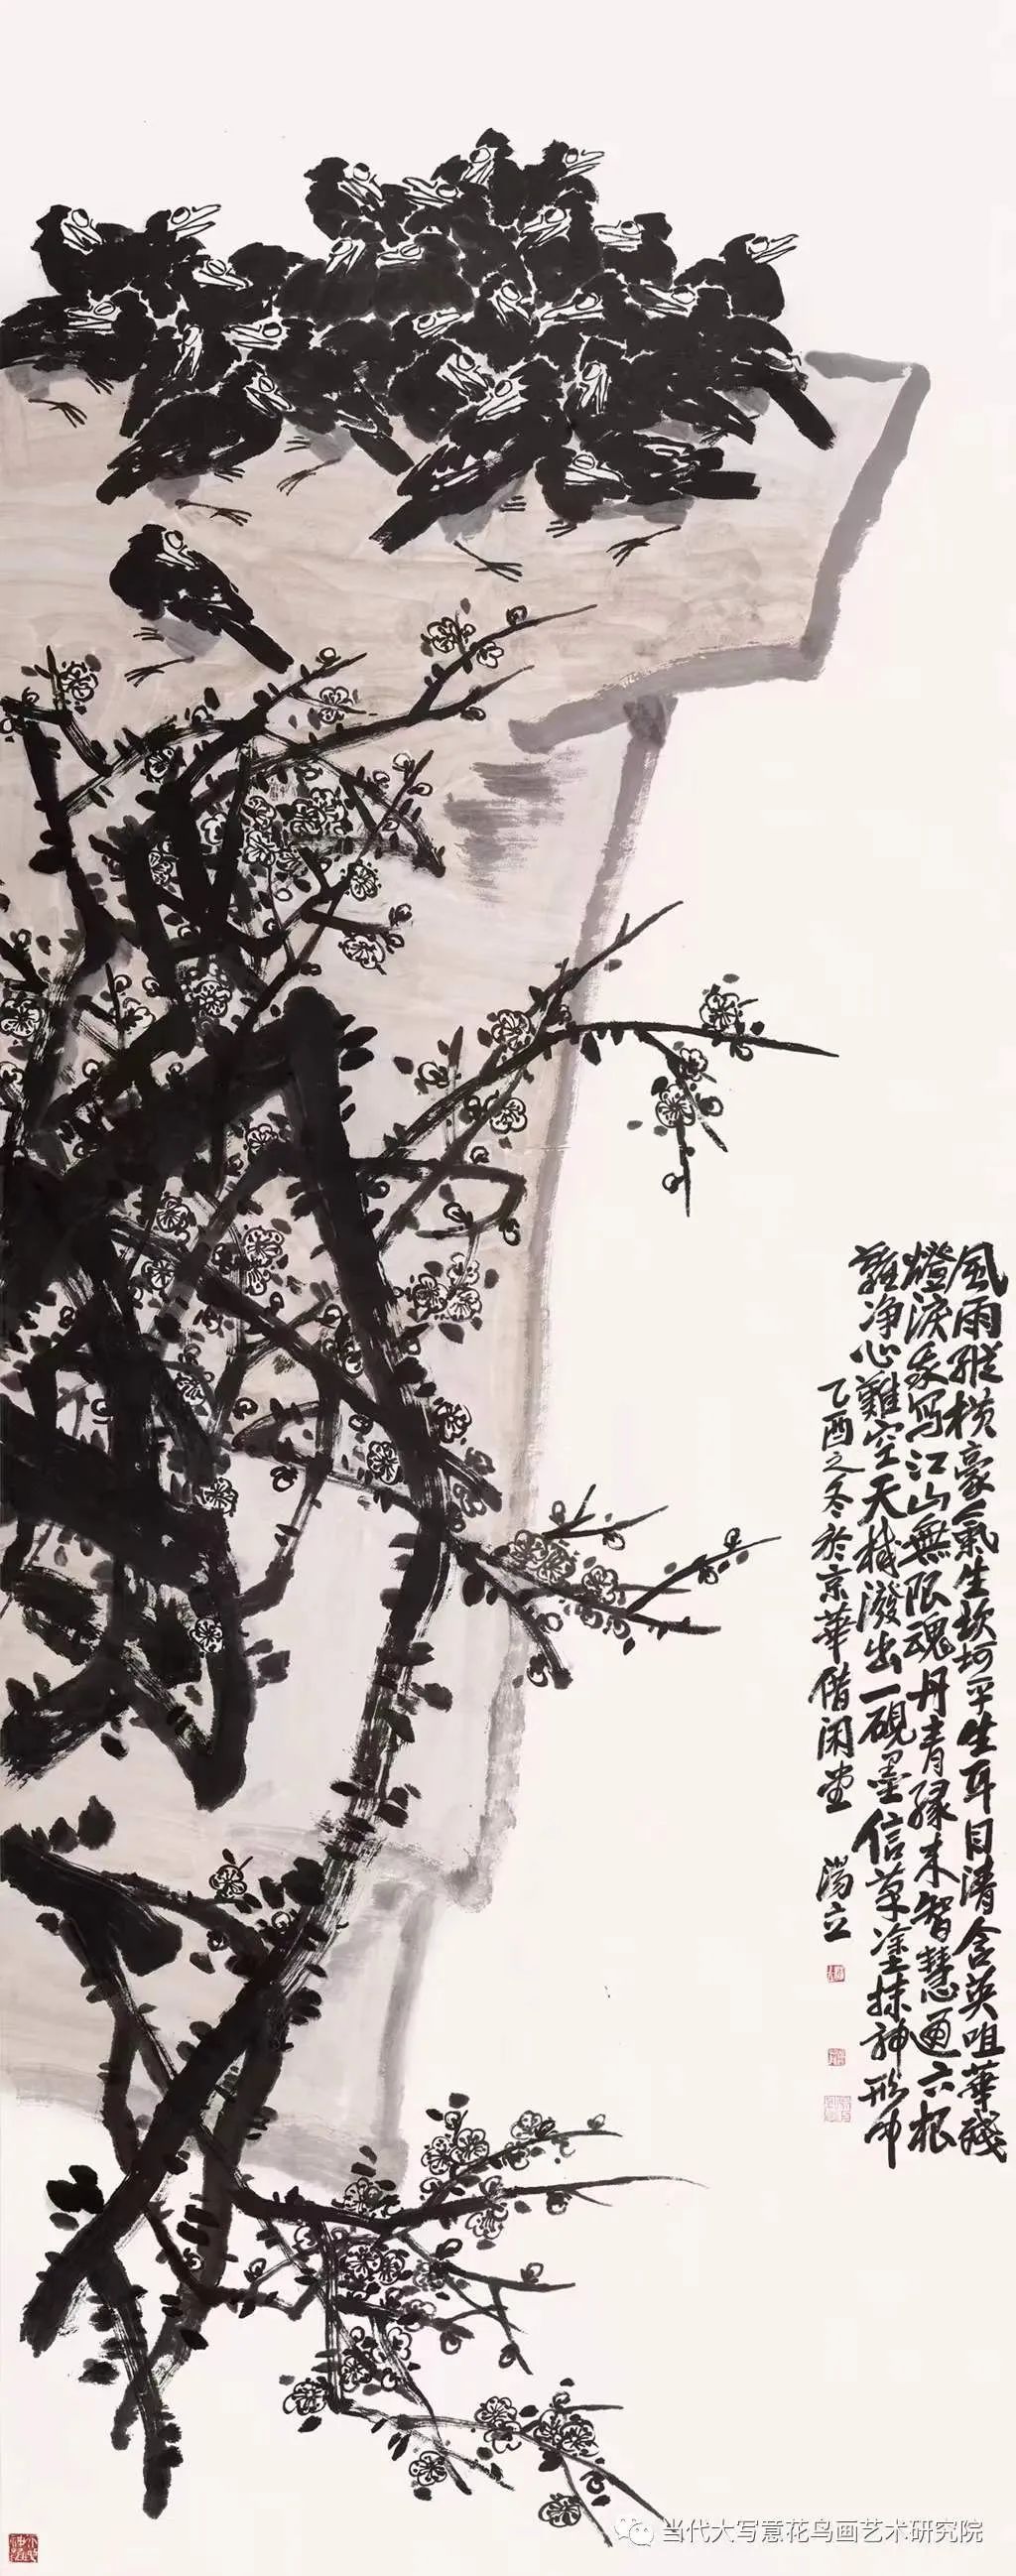 風雨縱横豪氣生坎坷平生耳目清含英咀華殘
燈淚写江山無限魂丹青緣来智慧通六根
難净心難空天機潑出一硯墨信塗抹神形中
乙酉之冬於京華借闲堂 湯立
当代大写意花鸟画艺术研究院